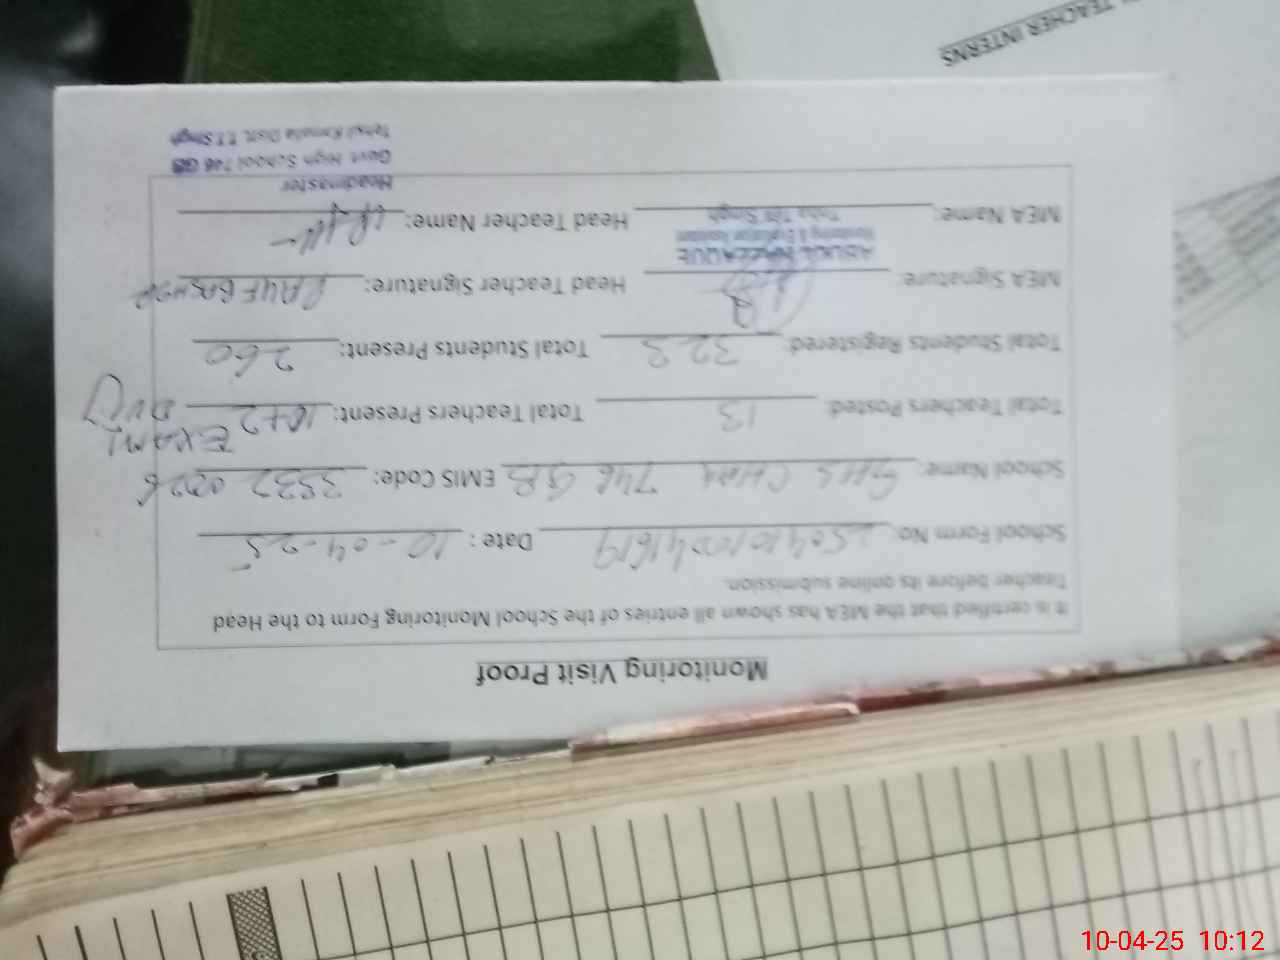 TEACHER INTERNS
Monitoring Visit Proof
It is certified that the MEA has shown all entries of the School Monitoring Form to the Head
Teacher before its online submission.
School Form No: Date : 10-04-25
School Name: GHS CHAK 746 GB EMIS Code:
Total Teachers Posted: 13 Total Teachers Present: 10+2 EXAM DUTY
Total Students Registered: 323 Total Students Present: 260
MEA Signature: Head Teacher Signature: RAUF BASHIR
MEA Name: Head Teacher Name:
Monitoring & Evaluation Assistant
Headmaster
Govt. High School 746 GB
Tehsil Kamalia Distt. T.T Singh
10-04-25 10:12